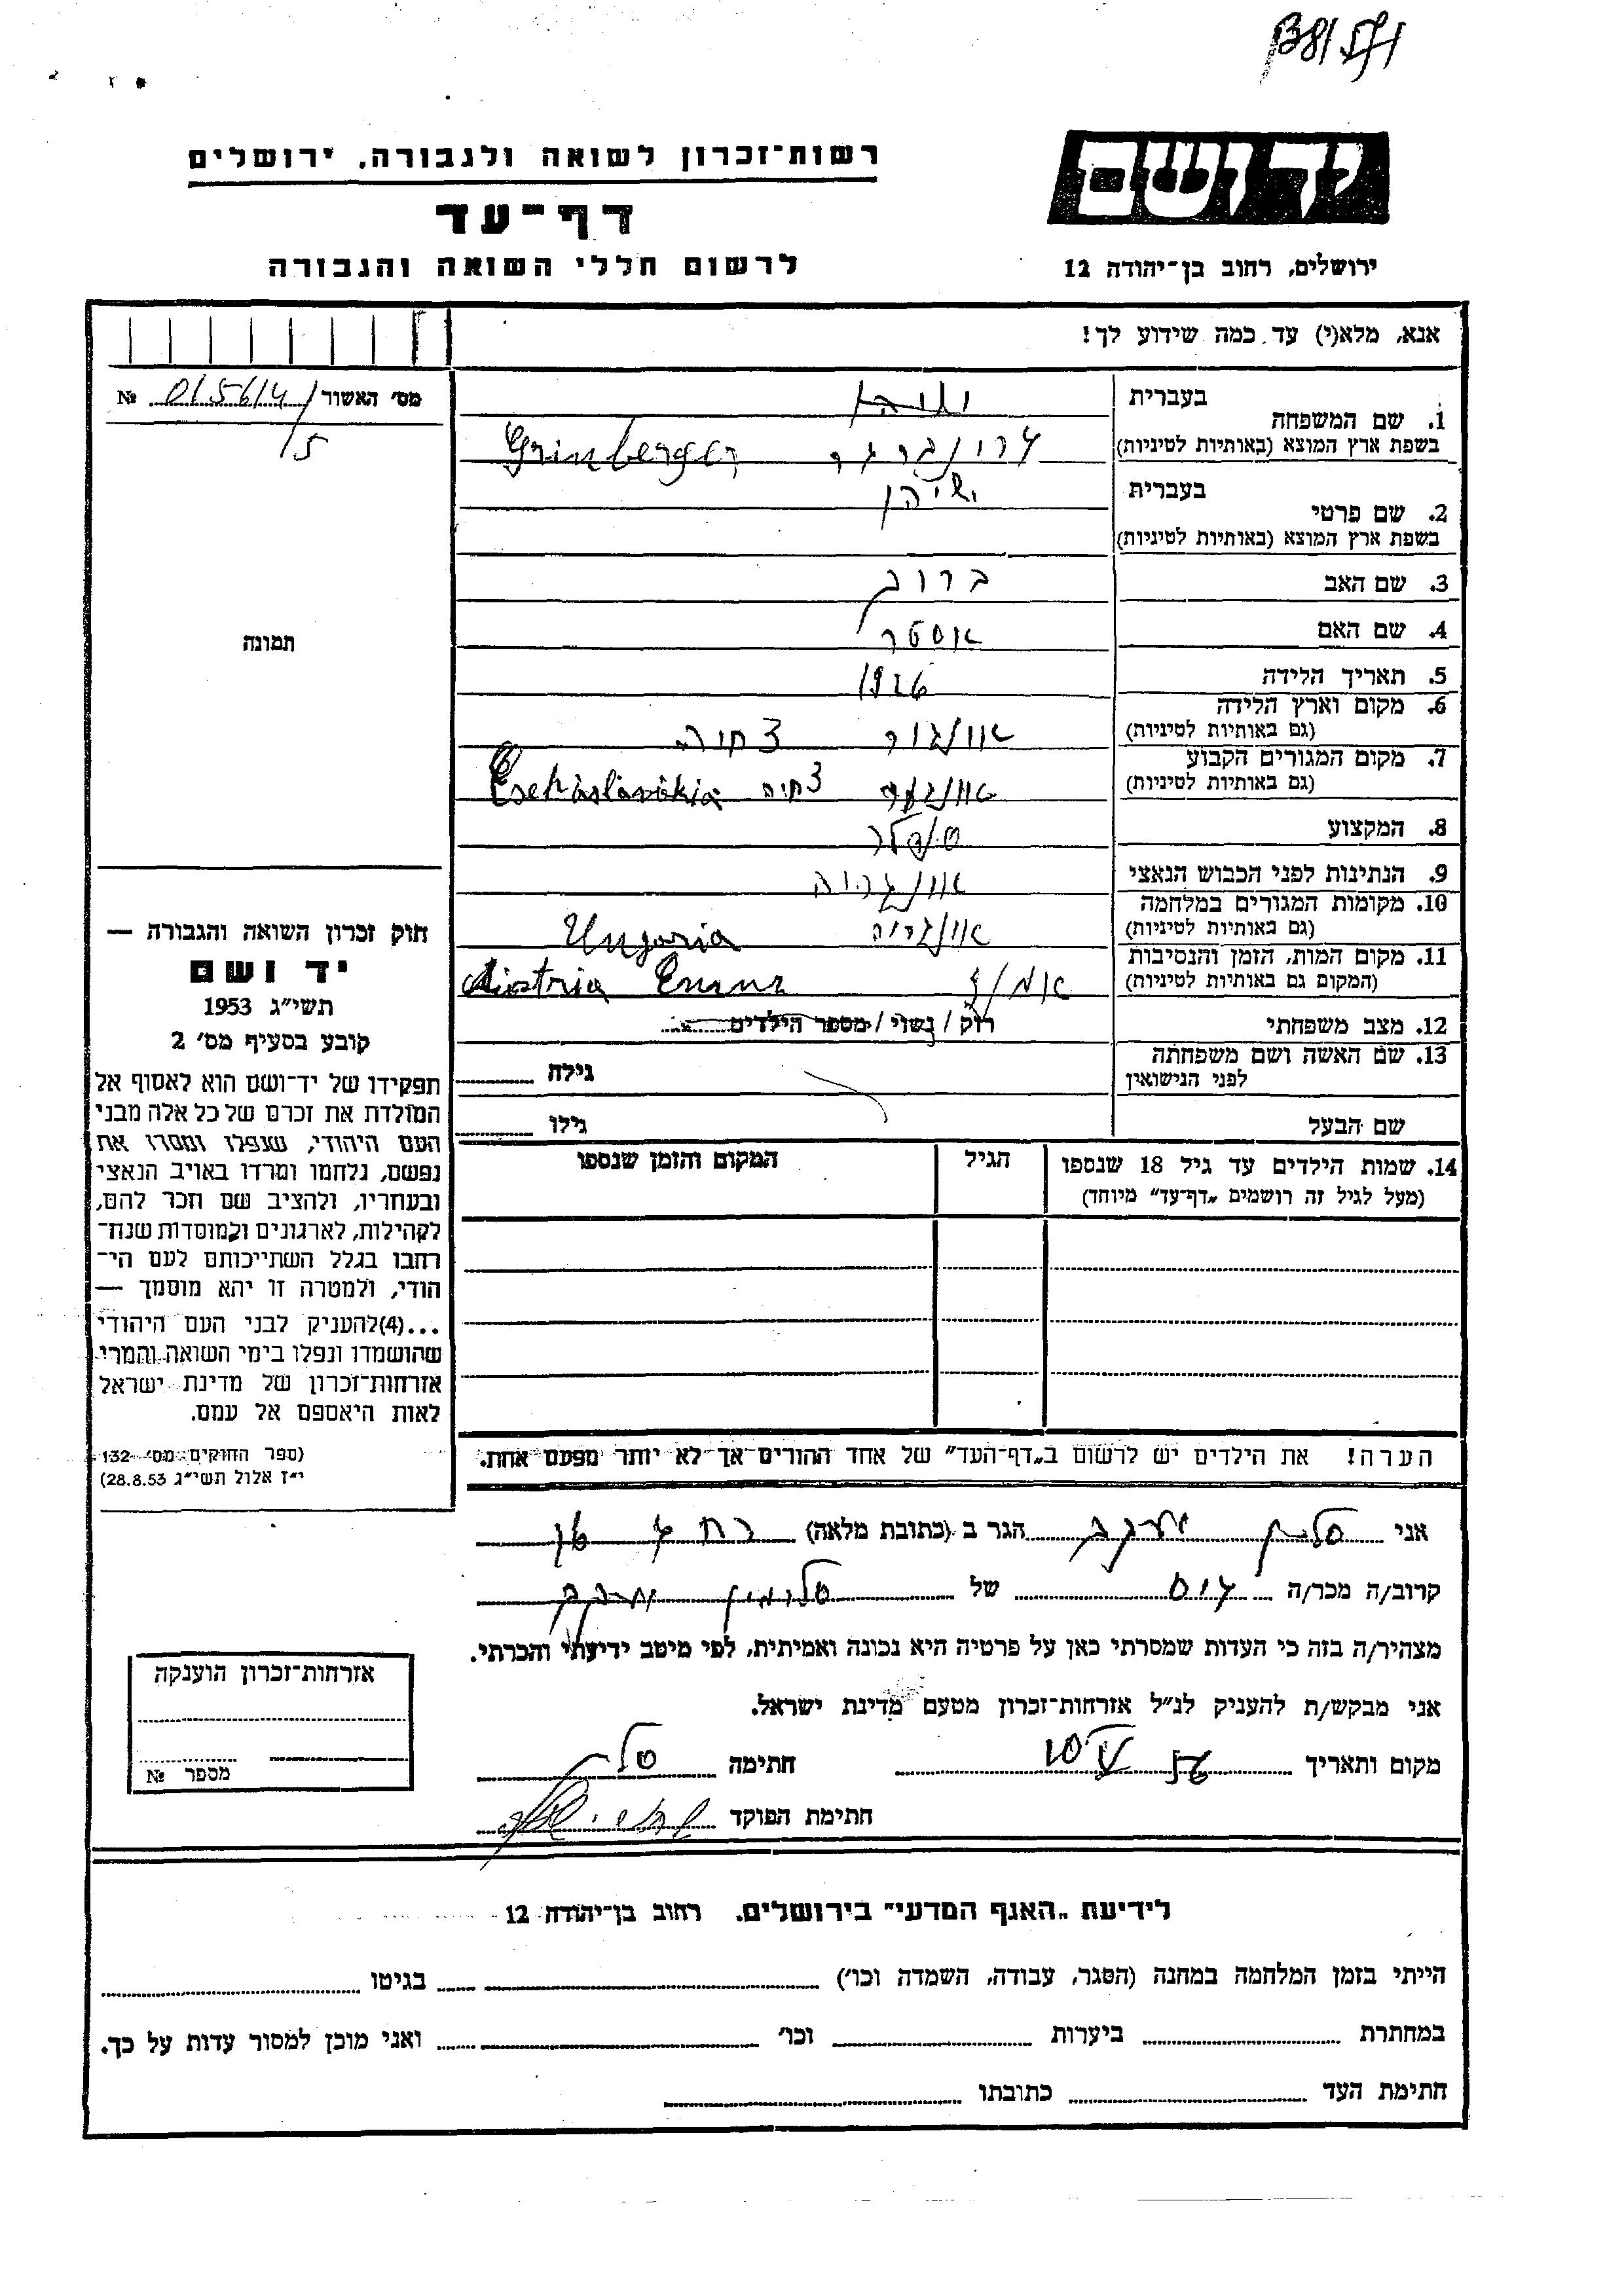 רשות-זכרון לשואה ולגבורה, ירושלים
דף-עד
לרשום חללי השואה והגבורה
יד ושם
ירושלים, רחוב בן-יהודה 12
אנא, מלא(י) עד כמה שידוע לך!
מס׳ האשור 015614/ №
15
1. שם המשפחה
בעברית
בשפת ארץ המוצא (באותיות לטיניות) גרינברגר Grinberger
2. שם פרטי
בעברית
בשפת ארץ המוצא (באותיות לטיניות)
3. שם האב ברוך
4. שם האם אסטר
5. תאריך הלידה 1926
6. מקום וארץ הלידה
(גם באותיות לטיניות) צחיה
7. מקום המגורים הקבוע
(גם באותיות לטיניות) צחיה Csehaslavákia
8. המקצוע
9. הנתינות לפני הכבוש הנאצי אונגריה
10. מקומות המגורים במלחמה
(גם באותיות לטיניות) אונגריה Ungaria
11. מקום המות, הזמן והנסיבות
(המקום גם באותיות לטיניות) Austria
12. מצב משפחתי רוק / נשוי / מספר הילדים
13. שם האשה ושם משפחתה
לפני הנישואין גילה
שם הבעל גילו
14. שמות הילדים עד גיל 18 שנספו
(מעל לגיל זה רושמים „דף-עד״ מיוחד)
הגיל
המקום והזמן שנספו
הערה! את הילדים יש לרשום ב„דף-העד״ של אחד ההורים אך לא יותר מפעם אחת.
תמונה
חוק זכרון השואה והגבורה —
יד ושם
תשי״ג 1953
קובע בסעיף מס׳ 2
תפקידו של יד-ושם הוא לאסוף אל
המולדת את זכרם של כל אלה מבני
העם היהודי, שנפלו ומסרו את
נפשם, נלחמו ומרדו באויב הנאצי
ובעוזריו, ולהציב שם וזכר להם,
לקהילות, לארגונים ולמוסדות שנח־
רבו בגלל השתייכותם לעם הי־
הודי, ולמטרה זו יהא מוסמך —
...(4)להעניק לבני העם היהודי
שהושמדו ונפלו בימי השואה והמרי
אזרחות-זכרון של מדינת ישראל
לאות היאספם אל עמם.
(ספר החוקים מס׳ 132
י״ז אלול תשי״ג 28.8.53)
אני יעקב הגר ב (כתובת מלאה)
קרוב/ה מכר/ה של יעקב
מצהיר/ה בזה כי העדות שמסרתי כאן על פרטיה היא נכונה ואמיתית, לפי מיטב ידיעתי והכרתי.
אני מבקש/ת להעניק לנ״ל אזרחות-זכרון מטעם מדינת ישראל.
מקום ותאריך חתימה
חתימת הפוקד
אזרחות-זכרון הוענקה
מספר №
לידיעת „האגף המדעי״ בירושלים, רחוב בן-יהודה 12
הייתי בזמן המלחמה במחנה (הסגר, עבודה, השמדה וכו׳) בגיטו
במחתרת ביערות וכו׳ ואני מוכן למסור עדות על כך.
חתימת העד כתובתו